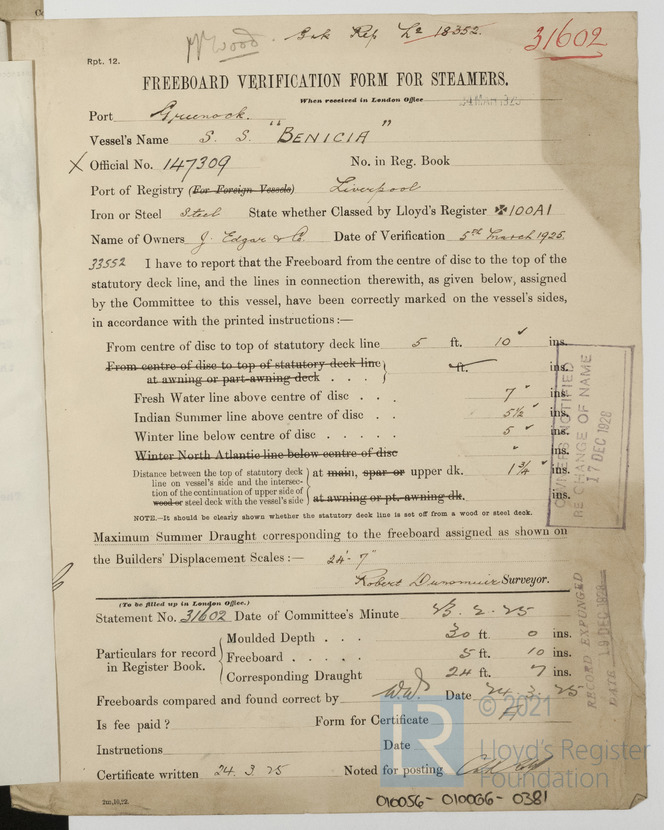 Wood. Gnk Rep No 18352. 31602
Rpt. 12.
FREEBOARD VERIFICATION FORM FOR STEAMERS.
When received in London Office 24 MAR 1925
Port Greenock.
Vessel's Name S. S. "BENICIA"
X Official No. 147309 No. in Reg. Book
Port of Registry (For Foreign Vessels) Liverpool
Iron or Steel Steel State whether Classed by Lloyd's Register ✠100A1
Name of Owners J. Edgar & Co. Date of Verification 5th March 1925.
33552 I have to report that the Freeboard from the centre of disc to the top of the
statutory deck line, and the lines in connection therewith, as given below, assigned
by the Committee to this vessel, have been correctly marked on the vessel's sides,
in accordance with the printed instructions:—
From centre of disc to top of statutory deck line 5 ft. 10 ✓ ins.
From centre of disc to top of statutory deck line
at awning or part-awning deck . . . } ft. ins.
Fresh Water line above centre of disc . . . 7 ✓ ins.
Indian Summer line above centre of disc . . 5½ ✓ ins.
Winter line below centre of disc . . . . . 5 ✓ ins.
Winter North Atlantic line below centre of disc " ins.
Distance between the top of statutory deck
line on vessel's side and the intersec-
tion of the continuation of upper side of
wood or steel deck with the vessel's side
} at main, spar or upper dk. 1¾ ✓ ins.
at awning or pt. awning dk. ins.
NOTE.—It should be clearly shown whether the statutory deck line is set off from a wood or steel deck.
Maximum Summer Draught corresponding to the freeboard assigned as shown on
the Builders' Displacement Scales:— 24'- 7"
Robert Dunsmuir Surveyor.
OWNERS NOTIFIED
RE CHANGE OF NAME
17 DEC 1928
(To be filled up in London Office.)
Statement No. 31602 Date of Committee's Minute 13. 2. 25
Particulars for record
in Register Book.
{ Moulded Depth . . . 30 ft. 0 ins.
Freeboard . . . . . 5 ft. 10 ins.
Corresponding Draught 24 ft. 7 ins.
RECORD EXPUNGED
DATE 19 DEC 1928
Freeboards compared and found correct by Date 24. 3. 25
Is fee paid? Form for Certificate A
Instructions Date
Certificate written 24. 3. 25 Noted for posting
2m,10,22.
© 2021
LR
Lloyd's Register
Foundation
010056-010066-0381